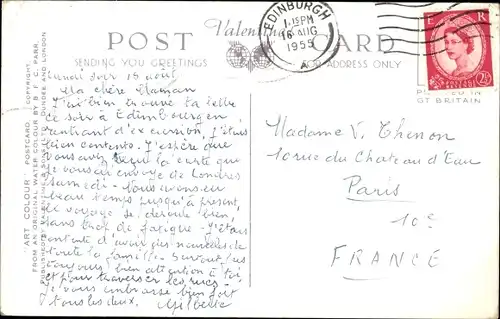 POST Valentine's CARD
SENDING YOU GREETINGS
FOR ADDRESS ONLY
EDINBURGH
1.15PM
16 AUG
1955
E R
2½
"ART COLOUR" POSTCARD. COPYRIGHT
FROM AN ORIGINAL WATER COLOUR BY B. F. C. PARR.
DUNDEE AND LONDON
Lundi soir 15 août
Ma chère Maman
J'ai bien trouvé ta lettre
ce soir à Edimbourg en
rentrant d'excursion, j'étais
bien contente. J'espère que
vous avez reçu la carte que
je vous ai envoyé de Londres
samedi - Nous avons eu
beau temps jusqu'à présent,
le voyage se déroule bien,
sans trop de fatigue - J'étais
contente d'avoir des nouvelles de
toute la famille. Surtout fais
toujours bien attention à toi
et pour traverser les rues -
Je vous embrasse bien fort
tous les deux. Gilberte
Madame V. Thenon
10 rue du Chateau d'Eau
Paris
10e
FRANCE
GT BRITAIN